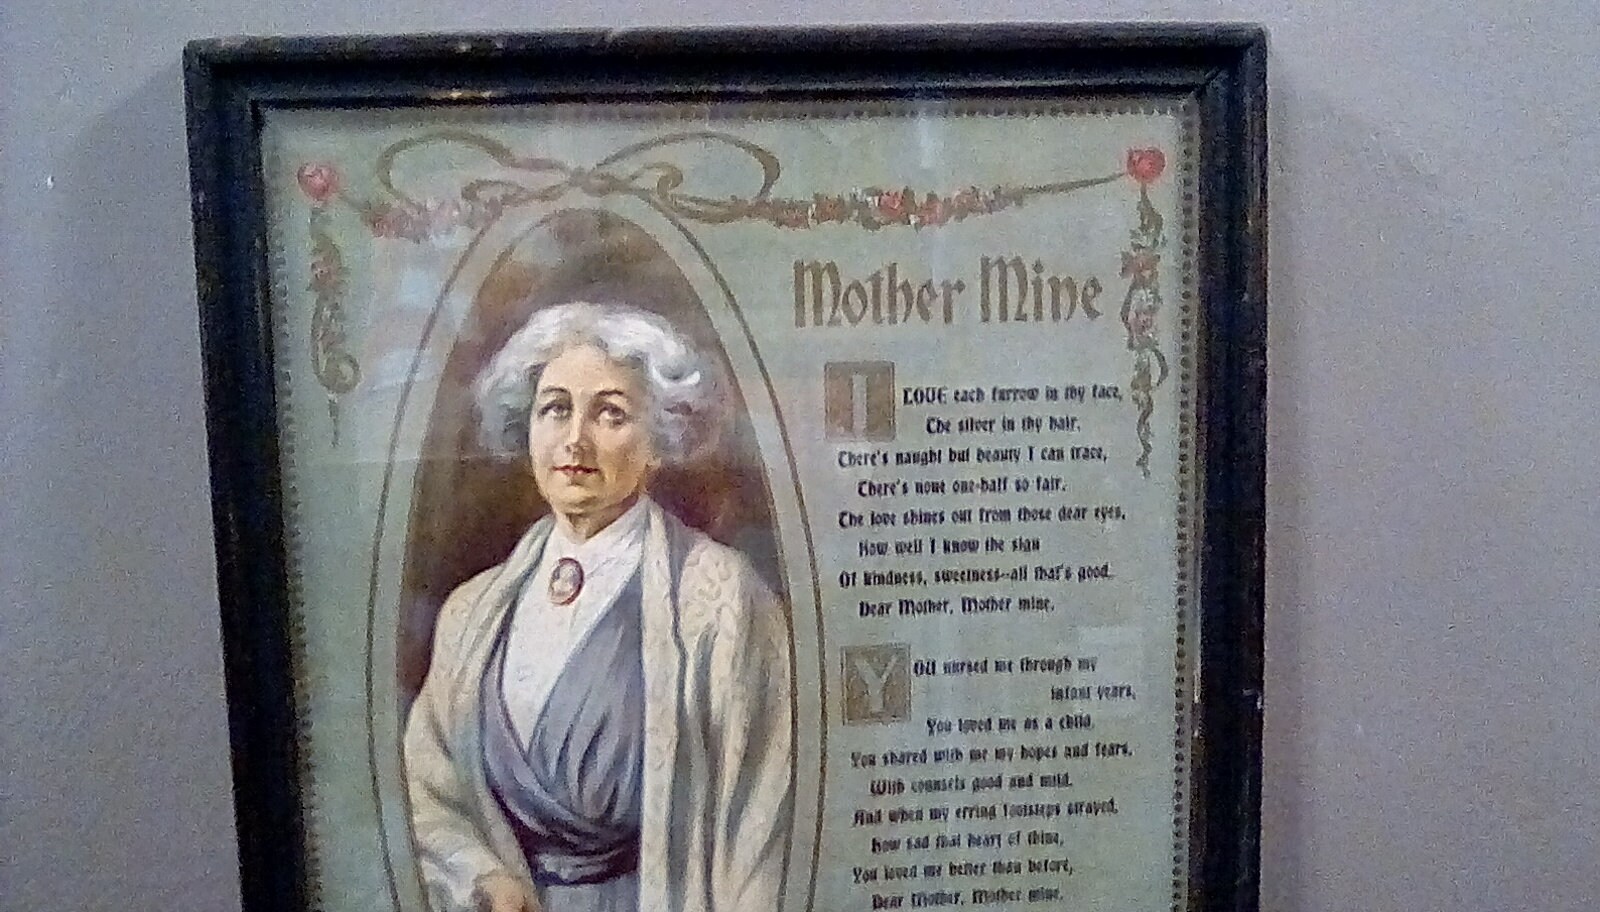 Mother Mine
I LOVE each furrow in thy face,
The silver in thy hair.
There's naught but beauty I can trace,
There's none one-half so fair.
The love shines out from those dear eyes,
How well I know the sign
Of kindness, sweetness--all that's good.
Dear Mother, Mother mine.
YOU nursed me through my
infant years,
You loved me as a child.
You shared with me my hopes and fears,
With counsels good and mild.
And when my erring footsteps strayed,
How sad that heart of thine,
You loved me better than before,
Dear Mother, Mother mine.